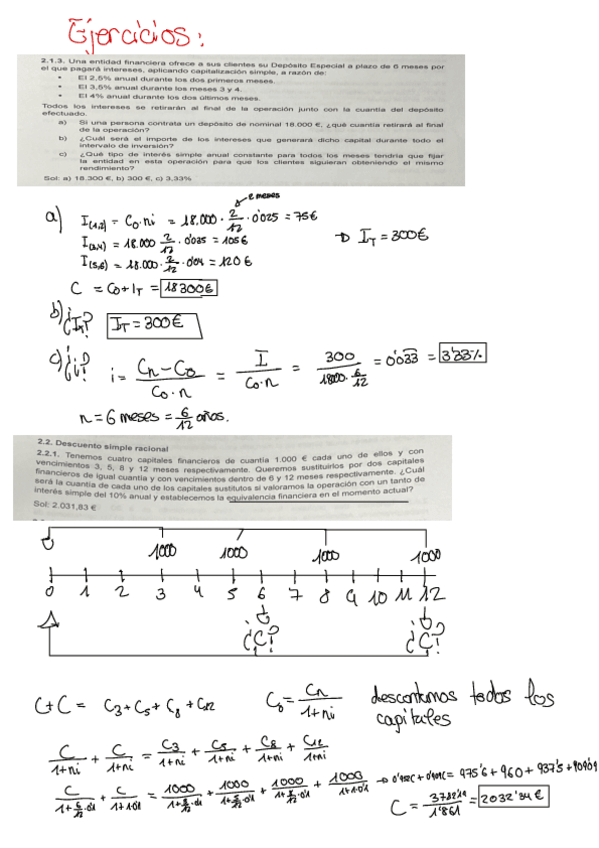 Ejercicios:
2.1.3. Una entidad financiera ofrece a sus clientes su Depósito Especial a plazo de 6 meses por
el que pagará intereses, aplicando capitalización simple, a razón de:
• El 2,5% anual durante los dos primeros meses.
• El 3,5% anual durante los meses 3 y 4.
• El 4% anual durante los dos últimos meses.
Todos los intereses se retirarán al final de la operación junto con la cuantía del depósito
efectuado.
a) Si una persona contrata un depósito de nominal 18.000 €, ¿qué cuantía retirará al final
de la operación?
b) ¿Cuál será el importe de los intereses que generará dicho capital durante todo el
intervalo de inversión?
c) ¿Qué tipo de interés simple anual constante para todos los meses tendría que fijar
la entidad en esta operación para que los clientes siguieran obteniendo el mismo
rendimiento?
Sol: a) 18.300 €, b) 300 €, c) 3,33%
2 meses
a) I(1,2) = C0·ni = 18.000 · 2/12 · 0'025 = 75€
I(3,4) = 18.000 2/12 · 0'035 = 105€ → IT = 300€
I(5,6) = 18.000 · 2/12 · 0'04 = 120€
C = C0+IT = 18300€
b) ¿In? IT = 300€
c) ¿i? i = Cn-C0 / C0·n = I / C0·n = 300 / 18000· 6/12 = 0'033 = 3'33%
n = 6 meses = 6/12 años.
2.2. Descuento simple racional
2.2.1. Tenemos cuatro capitales financieros de cuantía 1.000 € cada uno de ellos y con
vencimientos 3, 5, 8 y 12 meses respectivamente. Queremos sustituirlos por dos capitales
financieros de igual cuantía y con vencimientos dentro de 6 y 12 meses respectivamente. ¿Cuál
será la cuantía de cada uno de los capitales sustitutos si valoramos la operación con un tanto de
interés simple del 10% anual y establecemos la equivalencia financiera en el momento actual?
Sol: 2.031,83 €
1000 1000 1000 1000
0 1 2 3 4 5 6 7 8 9 10 11 12
¿C? ¿C?
C+C = C3+C5+C8+C12 C0 = Cn / 1+ni descontamos todos los
capitales
C/1+ni + C/1+ni = C3/1+ni + C5/1+ni + C8/1+ni + C12/1+ni
C/1+6/12·0'1 + C/1+1·0'1 = 1000/1+3/12·0'1 + 1000/1+5/12·0'1 + 1000/1+8/12·0'1 + 1000/1+1·0'1 → 0'952C + 0'909C = 975'6 + 960 + 937'5 + 909'09
C = 3782'19 / 1'861 = 2032'34€